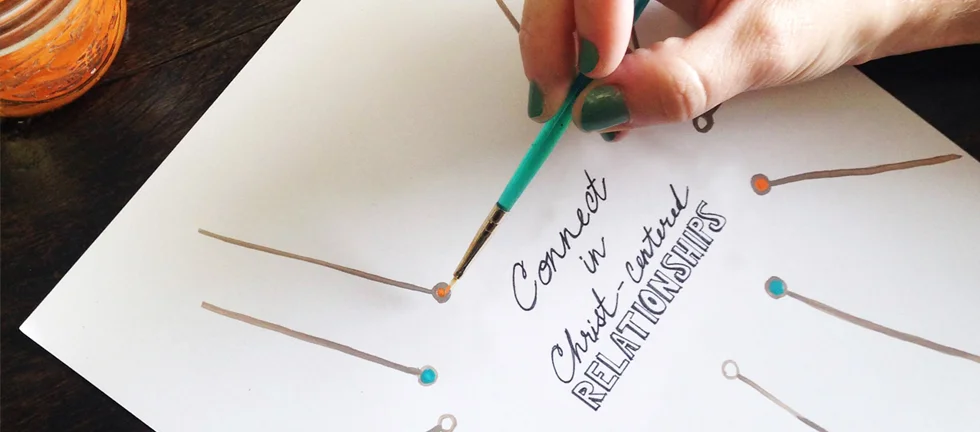 Connect
in
Christ-Centered
RELATIONSHIPS